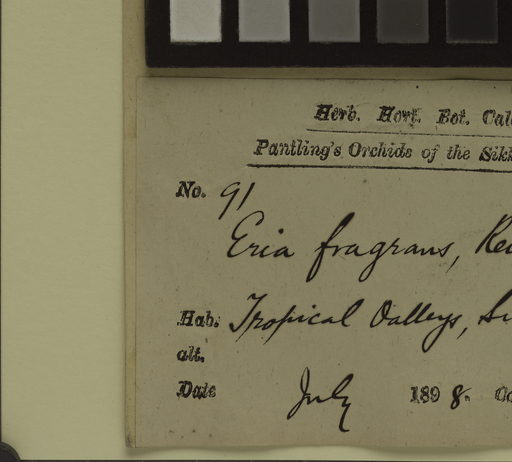 Herb. Hort. Bot. Cal
Pantling's Orchids of the Sikk
No. 91
Eria fragrans, Rei
Hab. Tropical Valleys, Si
alt.
Date July 1898. Co